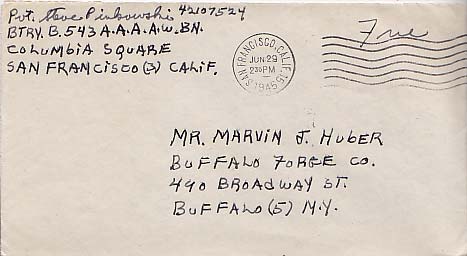 Pvt. Steve Pinkowski 42107524
BTRY. B. 543 A.A.A.A.W. BN.
COLUMBIA SQUARE
SAN FRANCISCO (3) CALIF.
Free
SAN FRANCISCO, CALIF. 15
JUN 29
230 PM
1945
MR. MARVIN J. HUBER
BUFFALO FORGE CO.
490 BROADWAY ST.
BUFFALO (5) N.Y.